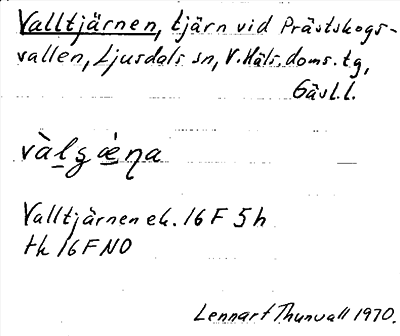 Valltjärnen, tjärn vid Prästskogs-
vallen, Ljusdals sn, V. Häls. doms. tg,
Gävl.l.
Valltjärnen ek. 16 F 5h
tk 16 F NO
Lennart Thunvall 1970.